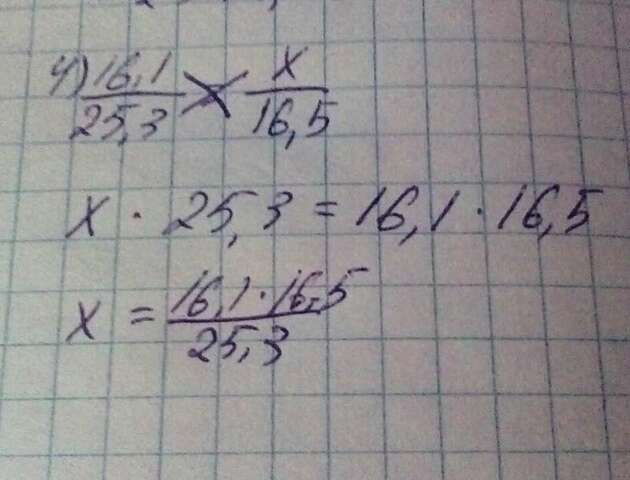 4) 16,1/25,3 = x/16,5
x · 25,3 = 16,1 · 16,5
x = 16,1 · 16,5/25,3